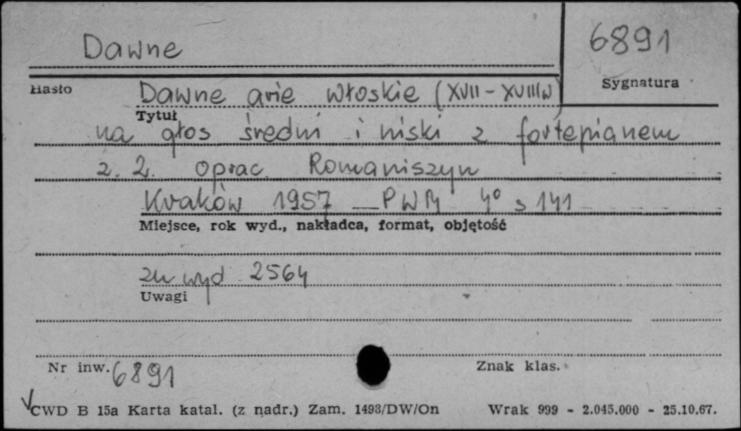 Dawne
6891
Hasło
Sygnatura
Dawne arie włoskie (XVII - XVIIIw)
Tytuł
na głos średni i niski z fortepianem
z. 2. oprac Romaniszyn
Kraków 1957 PWM 4° s 141
Miejsce, rok wyd., nakładca, format, objętość
zn wyd 2564
Uwagi
Nr inw. 6891
Znak klas.
CWD B 15a Karta katal. (z nadr.) Zam. 1493/DW/On Wrak 999 - 2.045.000 - 25.10.67.